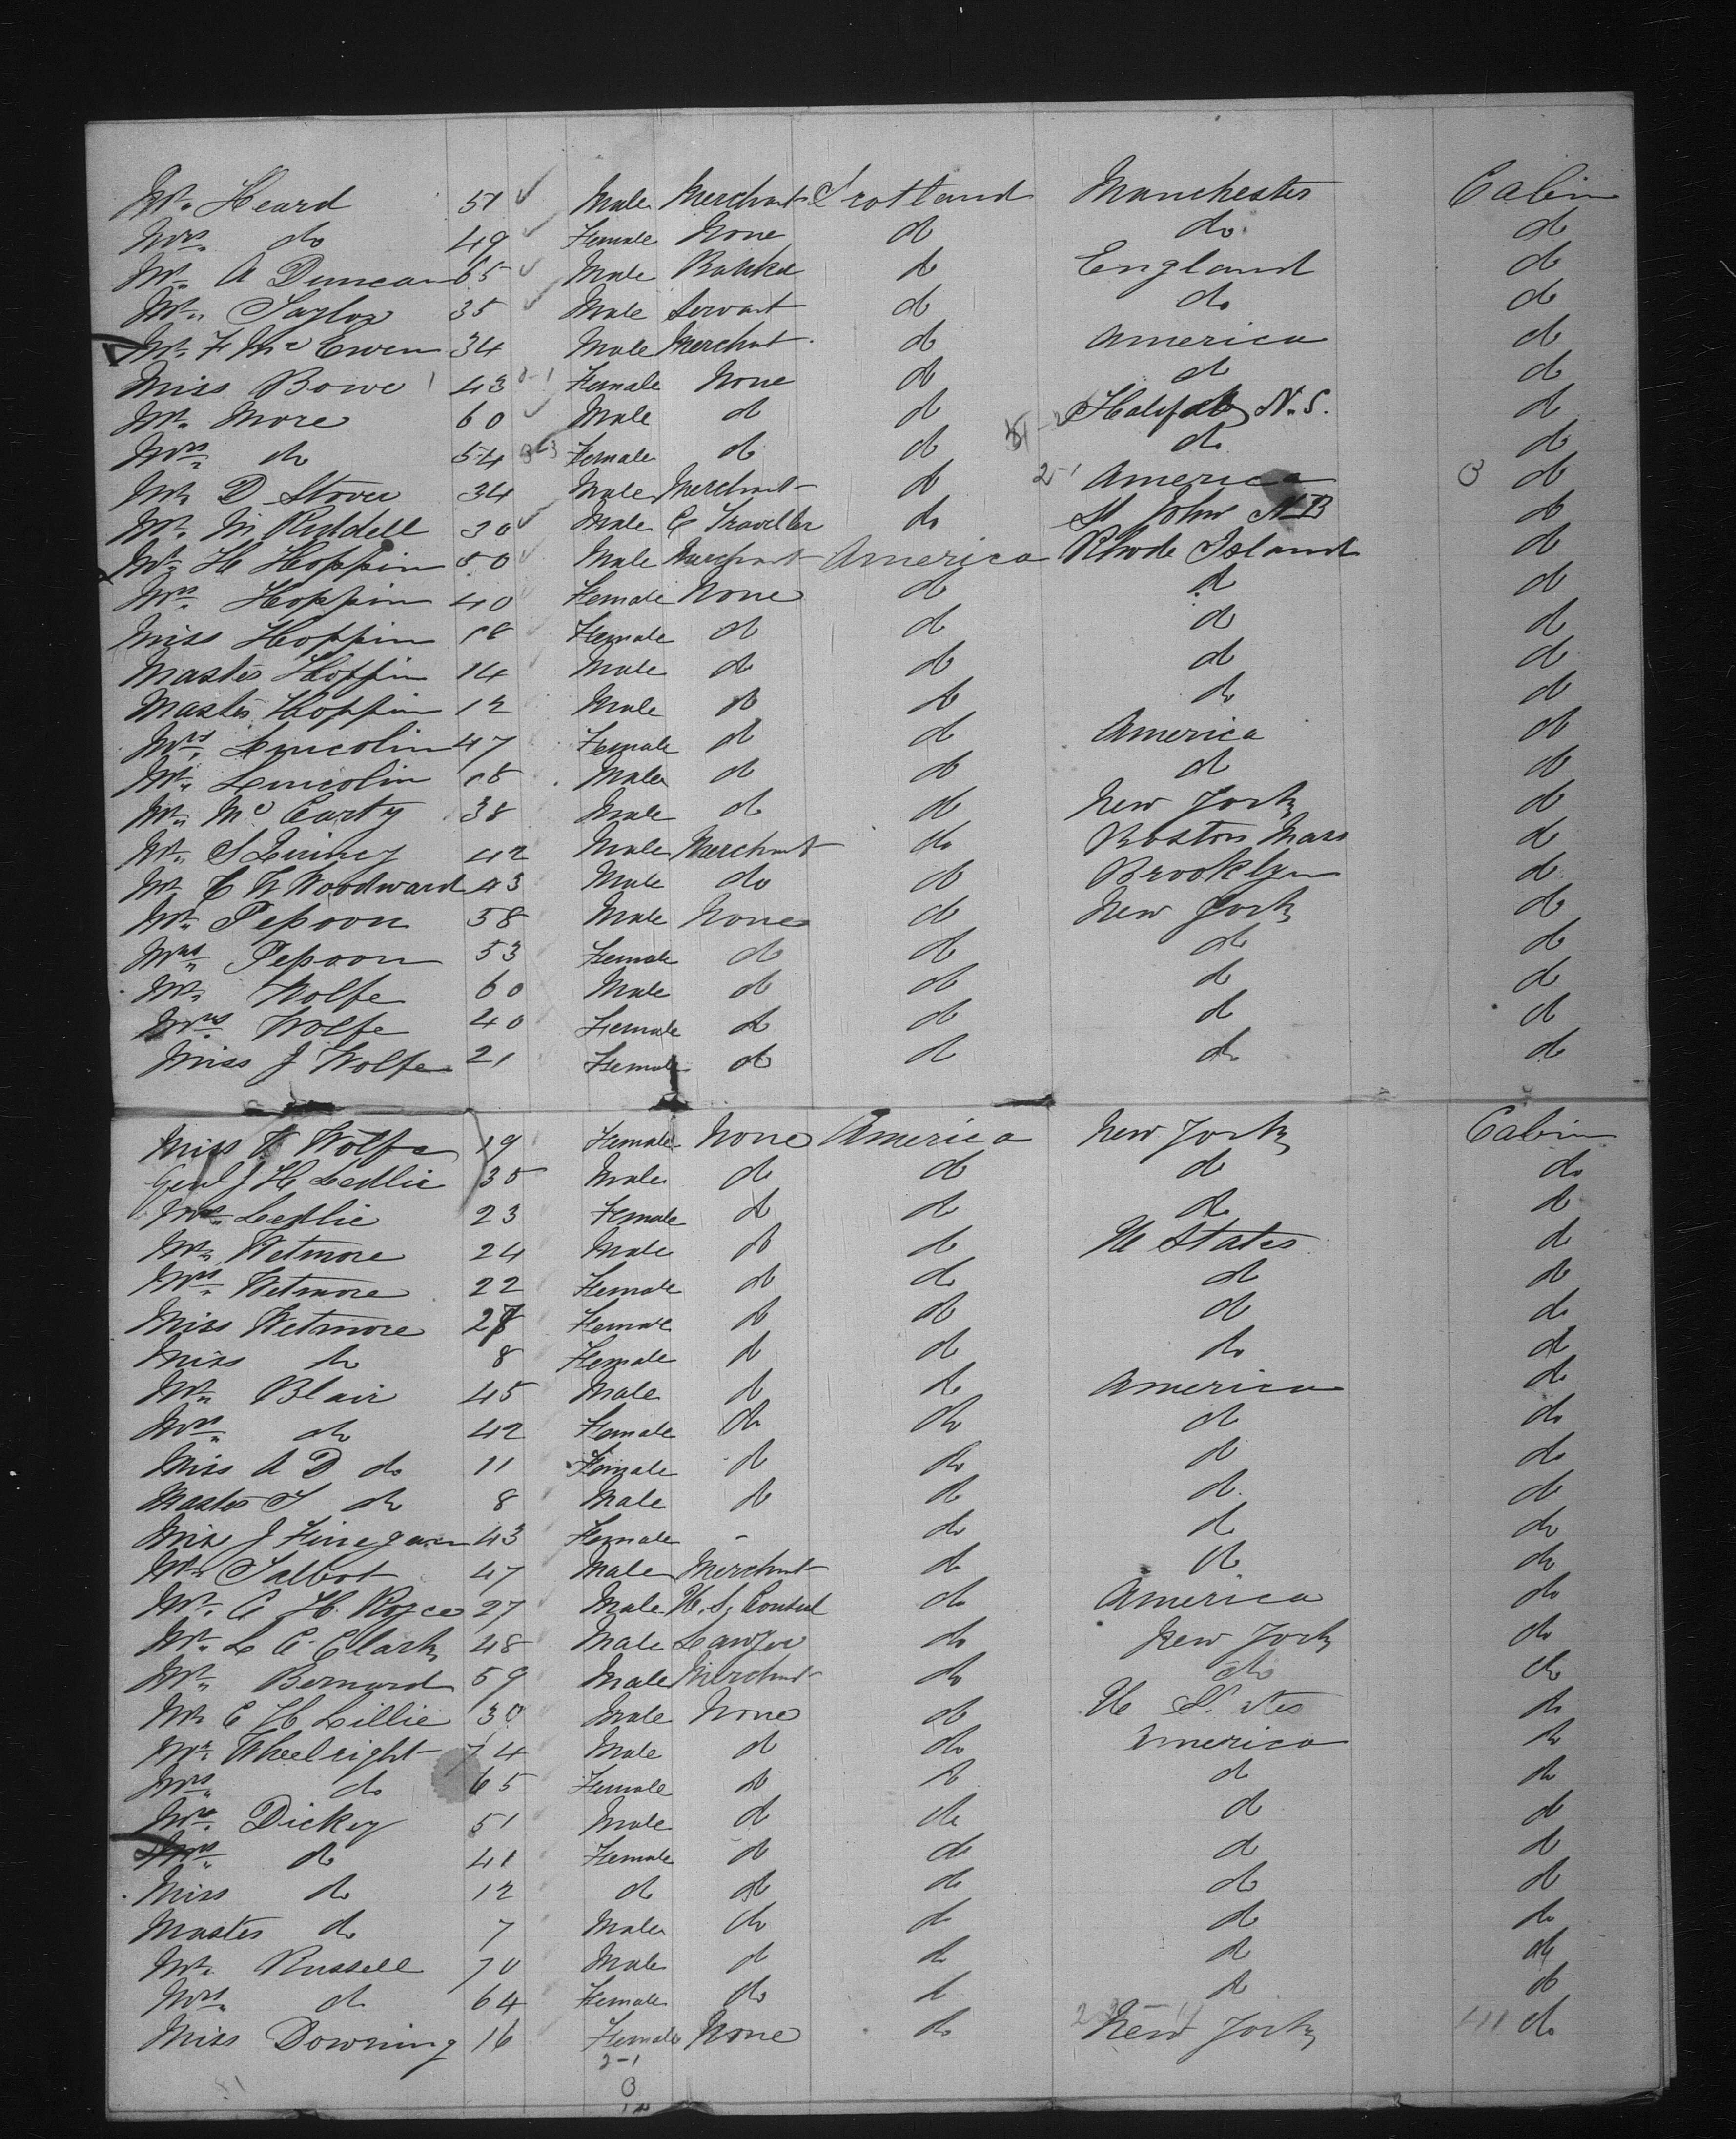 Mr. Heard 51 Male Merchant Scotland Manchester Cabin
Mrs. do 49 Female None do do. do
Mr. A Duncan 65 Male Banker do England do
Mr. Taylor 35 Male Servant do do do
Mr. F McEwen 34 Male Merchant do America do
Miss Bowe 43 Female None do do do
Mr. More 60 Male do do Halifax N.S. do
Mrs. do 54 Female do do do do
Mr. D Stover 34 Male Merchant do America do
Mr. M Ruddell 30 Male C Traveller do St John NB do
Mr. H Hoppin 50 Male Merchant America Rhode Island do
Mrs. Hoppin 40 Female None do do do
Miss Hoppin 18 Female do do do do
Master Hoppin 14 Male do do do do
Master Hoppin 12 Male do do do do
Mrs. Lincolin 47 Female do do America do
Mr. Lincolin 18 Male do do do do
Mr. McCarty 38 Male do do New York do
Mr. S Quincy 42 Male Merchant do Boston Mass do
Mr C W Woodward 43 Male do do Brooklyn do
Mr. Pepoon 58 Male None do New York do
Mrs. Pepoon 53 Female do do do do
Mr. Wolfe 60 Male do do do do
Mrs. Wolfe 40 Female do do do do
Miss J Wolfe 21 Female do do do do
Miss Wolfe 19 Female None America New York Cabin
Genl J H Ledlie 35 Male do do do do
Mrs. Ledlie 23 Female do do do do
Mr. Wetmore 24 Male do do U States do
Mrs. Wetmore 22 Female do do do do
Miss Wetmore Female do do do do
Miss do 8 Female do do do do
Mr. Blair 45 Male do do America do
Mrs. do 42 Female do do do do
Miss A D do 11 Female do do do do
Master do 8 Male do do do do
Miss J Finegan 43 Female - do do do
Mr. Talbot 47 Male Merchant do do do
Mr. C H. Royce 27 Male U.S. Consul do America do
Mr. L C. Clark 48 Male Lawyer do New York do
Mr. Bernard 59 Male Merchant do do do
Mr C H Lillie 30 Male None do U States do
Mr. Wheelright 74 Male do do America do
Mrs. do 65 Female do do do do
Mr. Dickey 51 Male do do do do
Mrs. do 41 Female do do do do
Miss do 12 do do do do do
Master do 7 Male do do do do
Mr. Russell 70 Male do do do do
Mrs. do 64 Female do do do do
Miss Downing 16 Female None do New York do
2-1
0